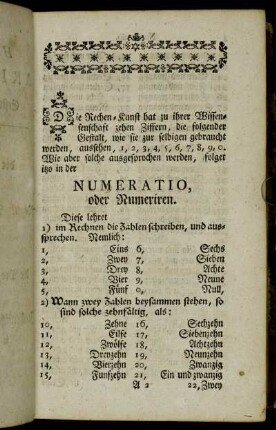 Die Rechen-Kunst hat zu ihrer Wissen-
senschaft zehen Ziffern, die folgender
Gestalt, wie sie zur selbigen gebraucht
werden, aussehen, 1, 2, 3, 4, 5, 6, 7, 8, 9, 0.
Wie aber solche ausgesprochen werden, folget
itzo in der
NUMERATIO,
oder Numeriren.
Diese lehret
1) im Rechnen die Zahlen schreiben, und aus-
sprechen. Nemlich:
1, Eins 6, Sechs
2, Zwey 7, Sieben
3, Drey 8, Achte
4, Vier 9, Neune
5, Fünf 0, Null,
2) Wann zwey Zahlen beysammen stehen, so
sind solche zehnfältig, als:
10, Zehne 16, Sechzehn
11, Eilfe 17, Siebenzehn
12, Zwölfe 18, Achtzehn
13, Dreyzehn 19, Neunzehn
14, Vierzehn 20, Zwanzig
15, Funfzehn 21, Ein und zwanzig
A 2 22, Zwey